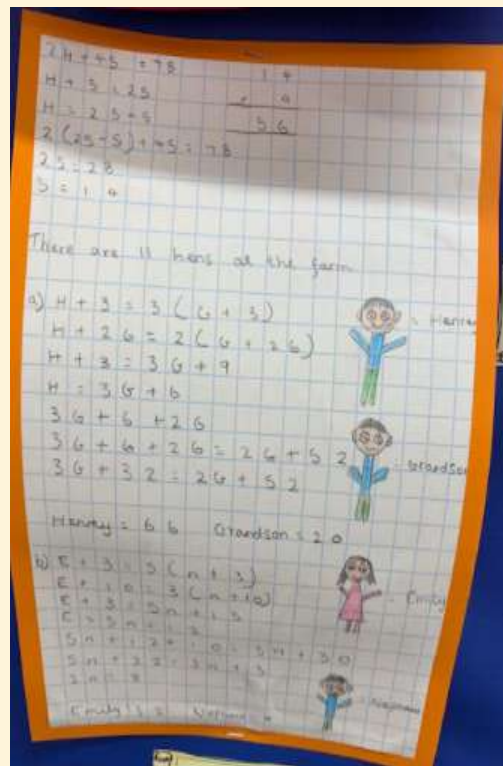 2H + 4S = 78
H + S = 25
H = 25 - S
2(25-S) + 4S = 78
2S = 28
S = 14
14
56
There are 11 hens at the farm
a) H + 3 = 3(G + 3)
H + 26 = 2(G + 26)
H + 3 = 3G + 9
H = 3G + 6
3G + 6 + 26
3G + 6 + 26 = 2G + 52
3G + 32 = 2G + 52
Henry = 66 Grandson = 20
= Henry
= Grandson
b) E + 3 = 5(n + 3)
E + 10 = 3(n + 10)
E + 3 = 5n + 15
E = 5n +
5n + 12 + 10 = 3n + 30
5n + 22 = 3n + 3
2n = 8
Emily
= Emily